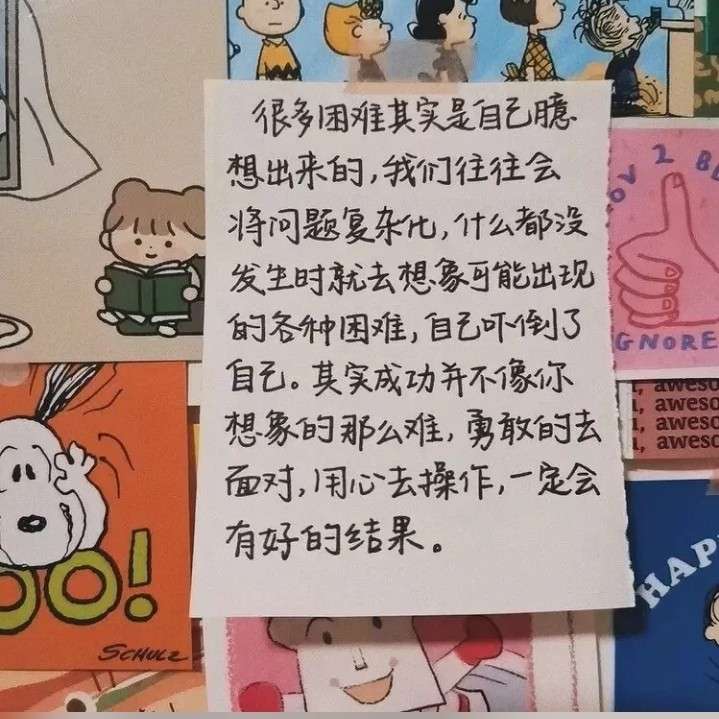 很多困难其实是自己臆
想出来的,我们往往会
将问题复杂化,什么都没
发生时就去想象可能出现
的各种困难,自己吓倒了
自己。其实成功并不像你
想象的那么难,勇敢的去
面对,用心去操作,一定会
有好的结果。
OV 2 BE
GNORE
aweso
aweso
aweso
aweso
OO!
SCHULZ
HAP